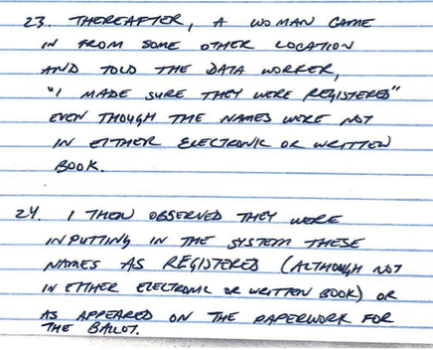 23. THEREAFTER, A WOMAN CAME
IN FROM SOME OTHER LOCATION
AND TOLD THE DATA WORKER,
"I MADE SURE THEY WERE REGISTERED"
EVEN THOUGH THE NAMES WERE NOT
IN EITHER ELECTRONIC OR WRITTEN
BOOK.
24. I THEN OBSERVED THEY WERE
INPUTTING IN THE SYSTEM THESE
NAMES AS REGISTERED (ALTHOUGH NOT
IN EITHER ELECTRONIC OR WRITTEN BOOK) OR
AS APPEARED ON THE PAPERWORK FOR
THE BALLOT.